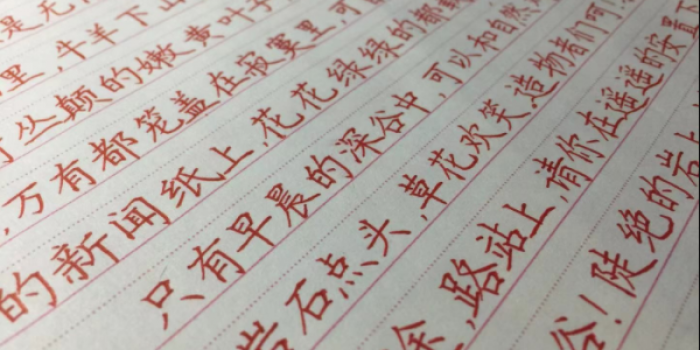 是无
里,牛羊下山
丛巅的嫩黄叶子
,万有都笼盖在寂寞里,可
的新闻纸上,花花绿绿的都
只有早晨的深谷中,可以和自然
岩石点头,草花欢笑。造物者们呵!
,路站上,请你在遥遥的安置
谷!陡绝的岩